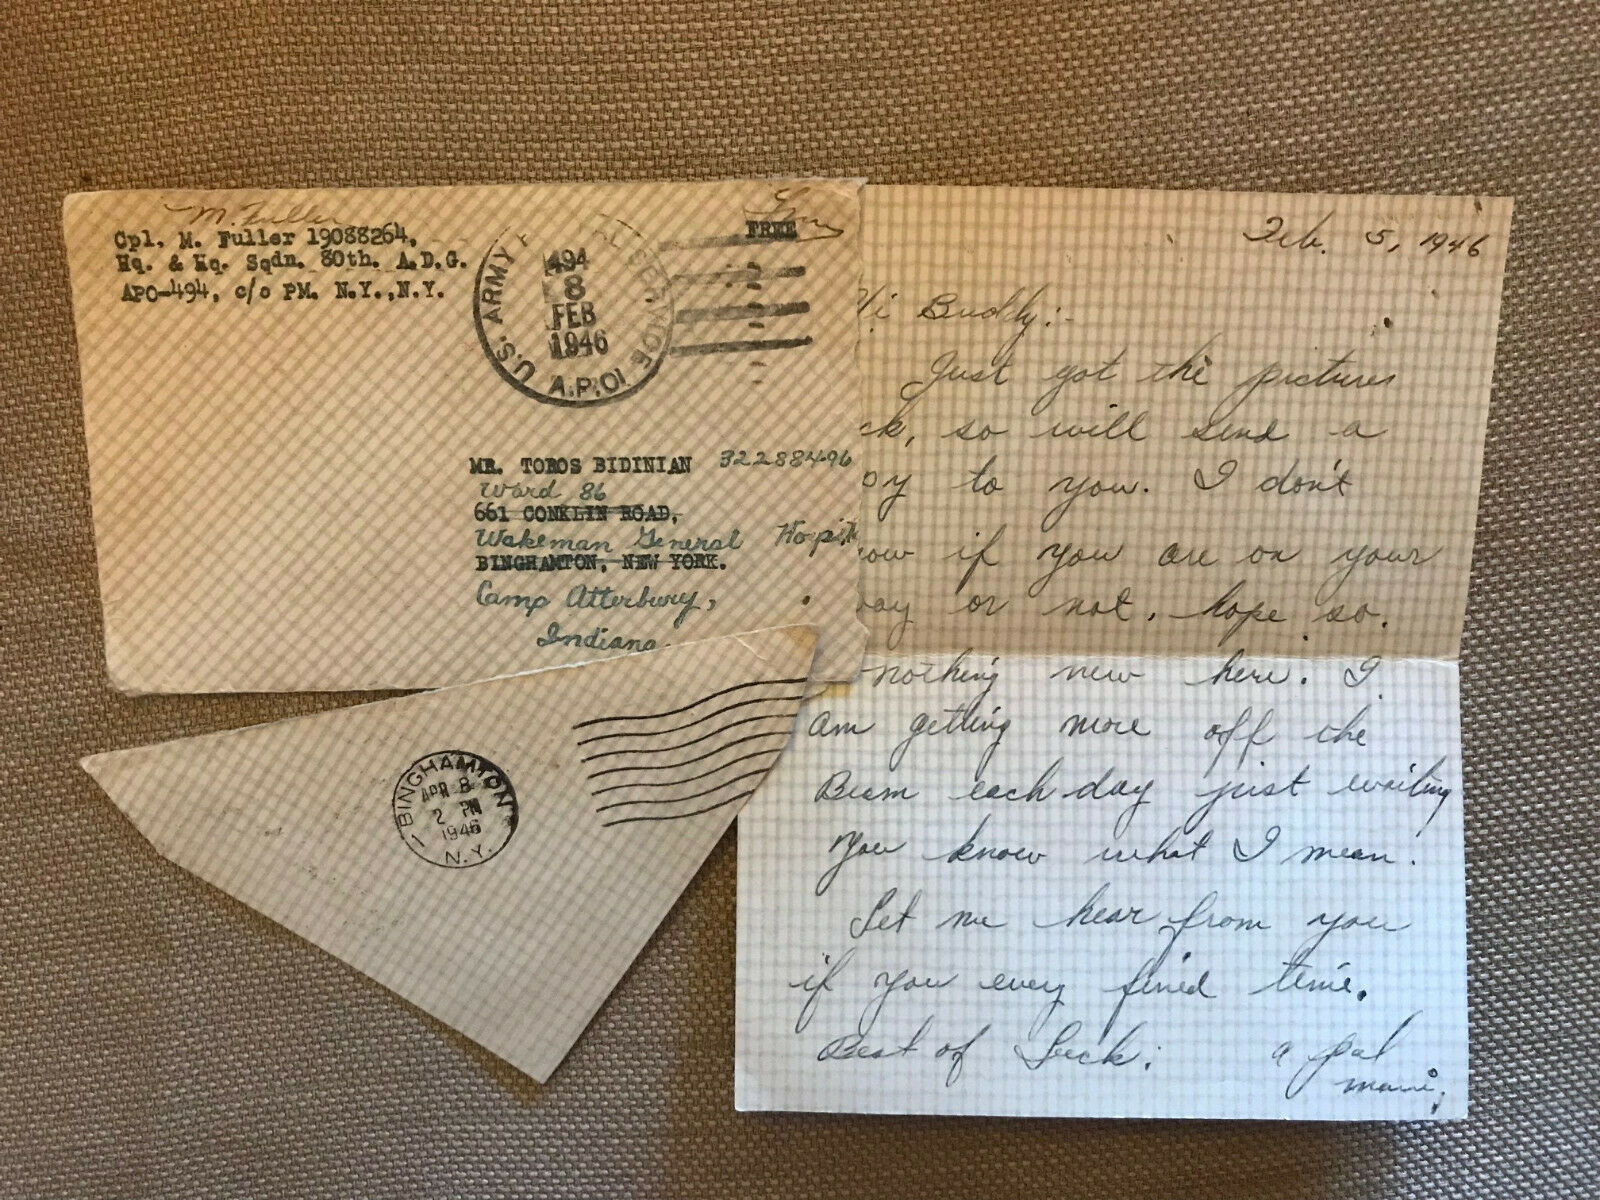 M. Fuller
Cpl. M. Fuller 19088264,
Hq. & Hq. Sqdn. 80th. A.D.G.
APO-494, c/o PM. N.Y.,N.Y.
U.S. ARMY
A.P.O.
494
8
FEB
1946
FREE
MR. TOROS BIDINIAN 32288496
Ward 86
661 CONKLIN ROAD,
Wakeman General Hospit
BINGHAMTON, NEW YORK.
Camp Atterbury,
Indiana
BINGHAMTON
APR 8
2 PM
1946
N.Y.
Feb. 5, 1946
Hi Buddy:-
Just got the pictures
ck, so will send a
py to you. I don't
now if you are on your
way or not. hope so.
nothing new here. I
am getting more off the
Beam each day just waiting
you know what I mean.
Let me hear from you
if you every find time.
Best of Luck: a pal